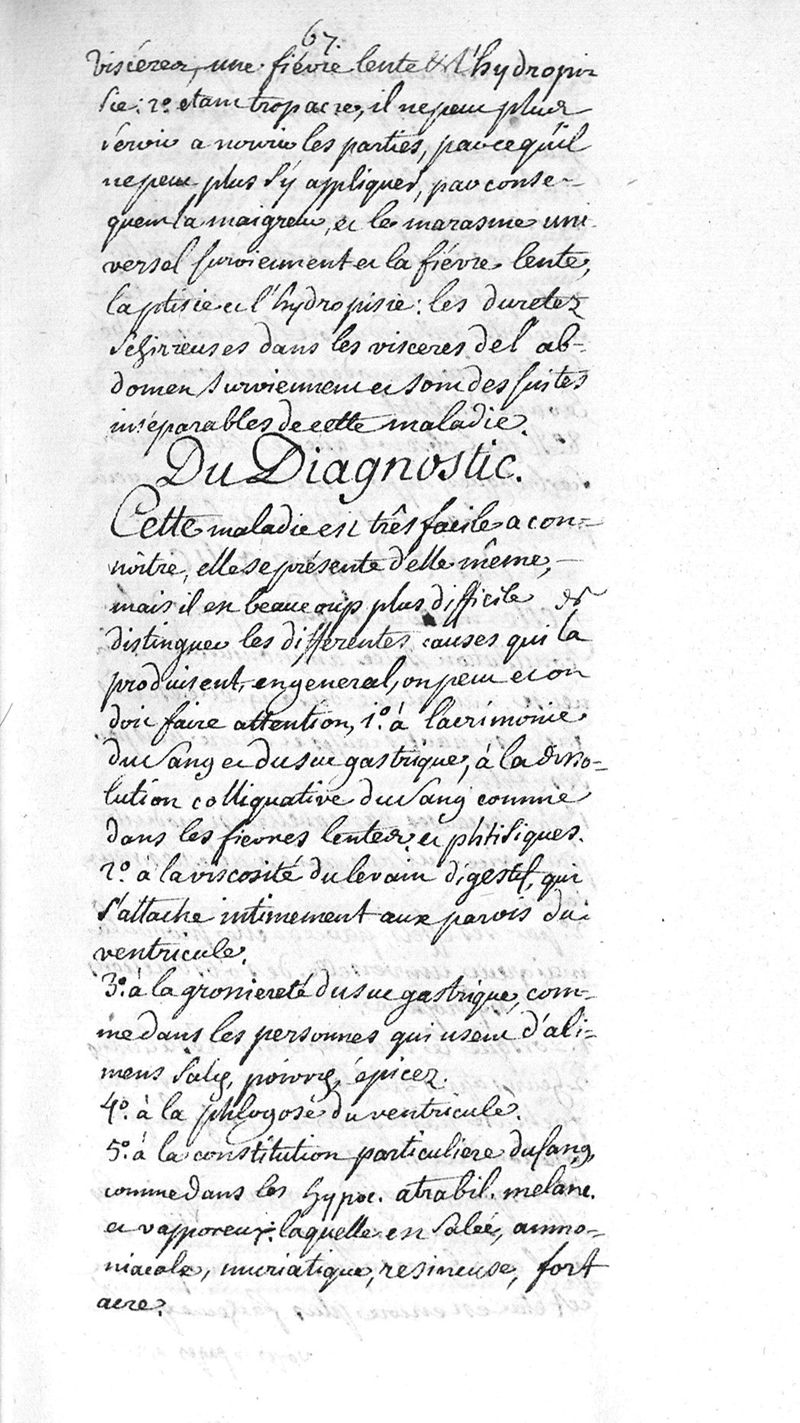 67.
viscéres, une fiévre lente & l'hydropi-
sie: 2º. etant trop acre, il ne peut plus
servir a nourir les parties, parcequ'il
ne peut plus s'y appliquer, par conse-
quent la maigreur, et le marasme uni-
versel surviennent et la fiévre lente,
la ptisie et l'hydropisie: les duretez
schirreuses dans les visceres de l'ab-
domen surviennent et sont des suites
inséparables de cette maladie.
Du Diagnostic.
Cette maladie est três facile a con-
nôitre, elle se présente d'elle même,
mais il est beaucoup plus difficile de
distinguer les differentes causes qui la
produisent, en general, on peut et on
doit faire attention, 1º. à l'acrimonie
du sang et du suc gastrique, à la disso-
lution colliquative du sang comme
dans les fievres lentes et phtisiques.
2º. à la viscosité du levain digestif, qui
s'attache intimement aux parois du
ventricule.
3º. à la grossiereté du suc gastrique, com-
me dans les personnes qui usent d'ali-
mens salés, poivrés, épicez.
4º. à la phlogose du ventricule.
5º. à la constitution particuliere du sang,
comme dans les hypoc. atrabil. melanc.
et vapporeux: laquelle est salée, ammo-
niacale, muriatique, resineuse, fort
acre.